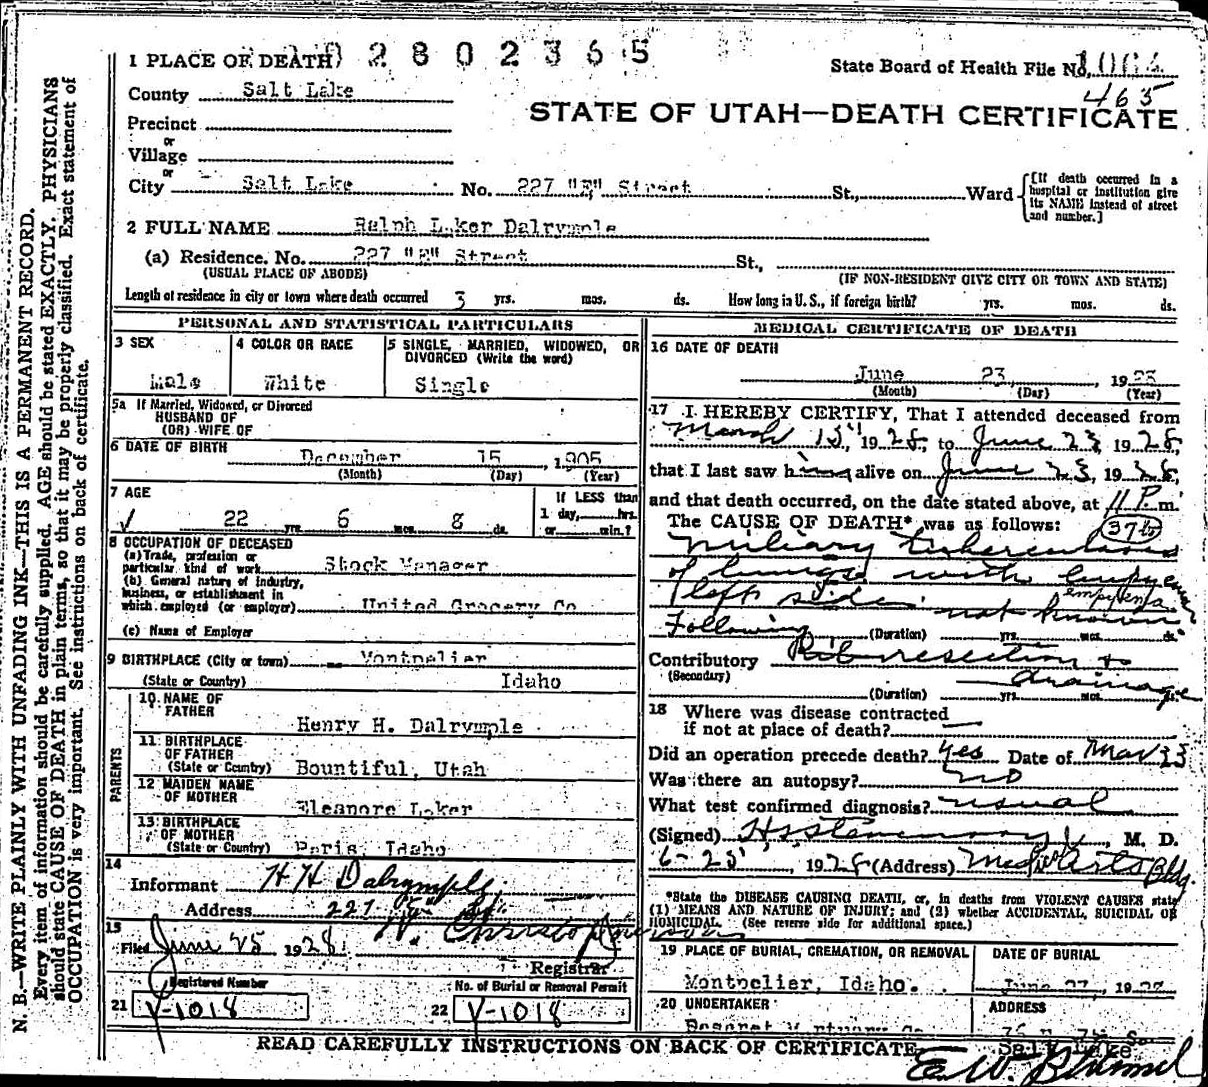 1 PLACE OF DEATH 2802365
State Board of Health File No.
465
County Salt Lake
STATE OF UTAH—DEATH CERTIFICATE
Precinct
or
Village
or
City Salt Lake No. 227 "E" Street St., Ward
[If death occurred in a hospital or institution give its NAME instead of street and number.]
2 FULL NAME Ralph Laker Dalrymple
(a) Residence. No. 227 "E" Street St.,
(USUAL PLACE OF ABODE) (IF NON-RESIDENT GIVE CITY OR TOWN AND STATE)
Length of residence in city or town where death occurred 3 yrs. mos. ds. How long in U. S., if foreign birth? yrs. mos. ds.
PERSONAL AND STATISTICAL PARTICULARS
3 SEX
Male
4 COLOR OR RACE
White
5 SINGLE, MARRIED, WIDOWED, OR
DIVORCED (Write the word)
Single
5a If Married, Widowed, or Divorced
HUSBAND OF
(OR) WIFE OF
6 DATE OF BIRTH
December 15, 1905
(Month) (Day) (Year)
7 AGE
22 yrs. 6 mos. 8 ds.
If LESS than
1 day, hrs.
or min.?
8 OCCUPATION OF DECEASED
(a) Trade, profession or
particular kind of work Stock Manager
(b) General nature of industry,
business, or establishment in
which employed (or employer) United Grocery Co
(c) Name of Employer
9 BIRTHPLACE (City or town) Montpelier
(State or Country) Idaho
PARENTS
10 NAME OF
FATHER
Henry H. Dalrymple
11 BIRTHPLACE
OF FATHER
(State or Country) Bountiful, Utah
12 MAIDEN NAME
OF MOTHER
Eleanore Laker
13 BIRTHPLACE
OF MOTHER
(State or Country) Paris, Idaho
14
Informant H H Dalrymple
Address 227 "E" St.
15
Filed June 25 1928
Registrar
Registered Number
21 V-1018
No. of Burial or Removal Permit
22 V-1018
MEDICAL CERTIFICATE OF DEATH
16 DATE OF DEATH
June 23, 1928
(Month) (Day) (Year)
17 I HEREBY CERTIFY, That I attended deceased from
March 15, 1928, to June 23 1928,
that I last saw him alive on June 23, 1928,
and that death occurred, on the date stated above, at 11 P. m.
The CAUSE OF DEATH* was as follows:
Miliary tuberculosis
of lungs with empyema
empyema
left side not known
Following (Duration) yrs. mos. ds.
Contributory Rib resection &
(Secondary) drainage
(Duration) yrs. mos. ds.
18 Where was disease contracted
if not at place of death?
Did an operation precede death? Yes Date of Mar 23
Was there an autopsy? no
What test confirmed diagnosis? usual
(Signed) M. D.
6-25, 1928 (Address) Med Arts Bldg.
*State the DISEASE CAUSING DEATH, or, in deaths from VIOLENT CAUSES state
(1) MEANS AND NATURE OF INJURY; and (2) whether ACCIDENTAL, SUICIDAL OR
HOMICIDAL. (See reverse side for additional space.)
19 PLACE OF BURIAL, CREMATION, OR REMOVAL
Montpelier, Idaho.
DATE OF BURIAL
June 27, 19
20 UNDERTAKER
Deseret Mortuary Co
ADDRESS
Salt Lake
READ CAREFULLY INSTRUCTIONS ON BACK OF CERTIFICATE
N. B.—WRITE PLAINLY WITH UNFADING INK—THIS IS A PERMANENT RECORD.
Every item of information should be carefully supplied. AGE should be stated EXACTLY. PHYSICIANS
should state CAUSE OF DEATH in plain terms, so that it may be properly classified. Exact statement of
OCCUPATION is very important. See instructions on back of certificate.